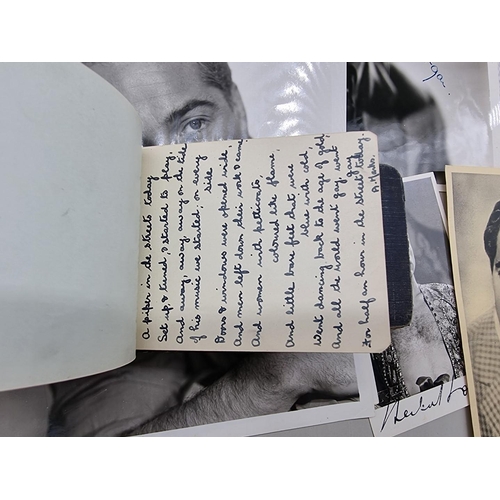 A piper in the streets today
Set up & tuned, & started to play,
And away, away, away on the tide
Of his music we started; on every
side
Doors & windows were opened wide,
And men left down their work & came
And women with petticoats,
coloured like flame,
And little bare feet that were
blue with cold
Went dancing back to the age of gold,
And all the world went gay, went
gay,
For half an hour in the street today.
A. Marks.